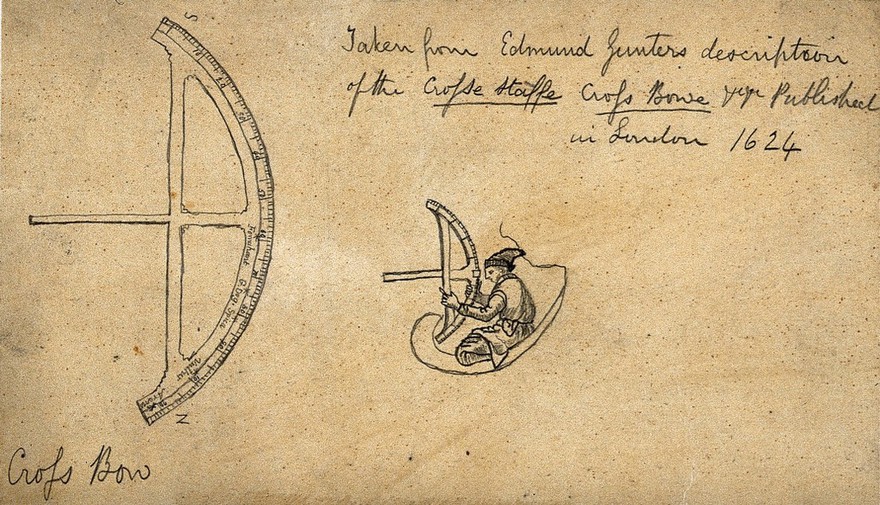 Taken from Edmund Gunters description
of the Croſse Staffe Croſs Bowe Published
in London 1624
S
G. Dog Spica
Vultur
N
Croſs Bow